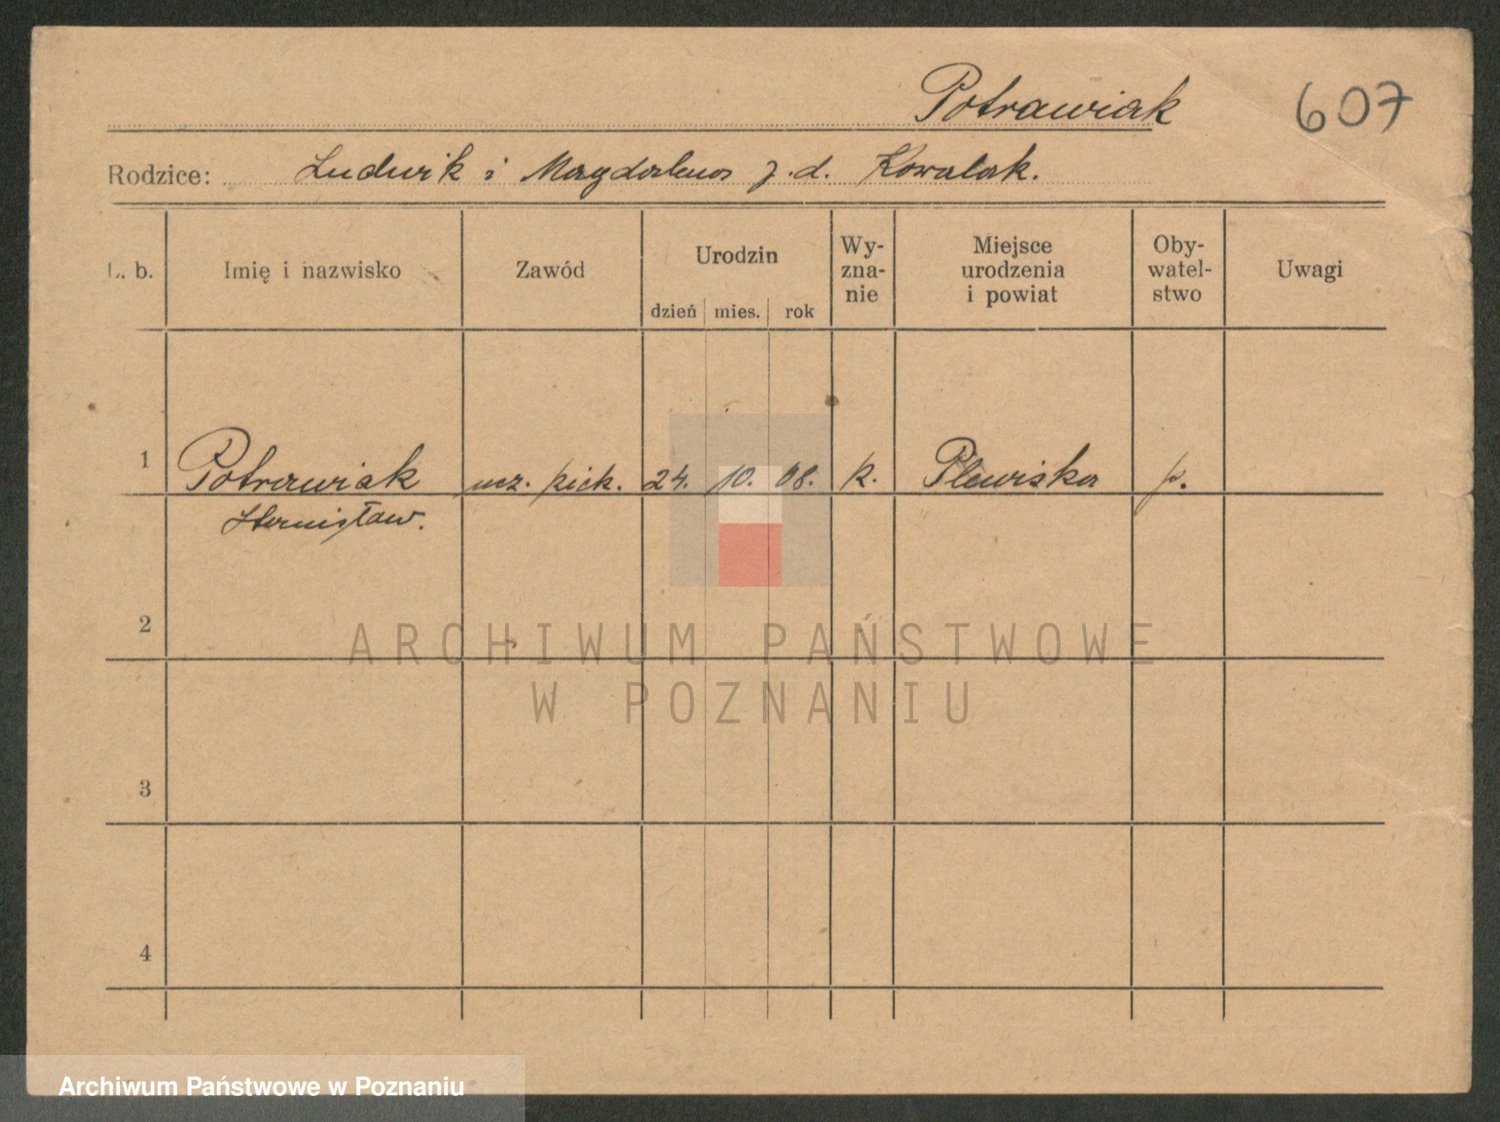 Potrawiak
607
Rodzice: Ludwik i Magdalena z.d. Kowalak.
L. b. Imię i nazwisko Zawód Urodzin dzień mies. rok Wy-zna-nie Miejsce urodzenia i powiat Oby-watel-stwo Uwagi
1 Potrawiak ucz. piek. 24. 10. 08. k. Plewiska p.
Stanisław.
2
ARCHIWUM PAŃSTWOWE
W POZNANIU
3
4
Archiwum Państwowe w Poznaniu